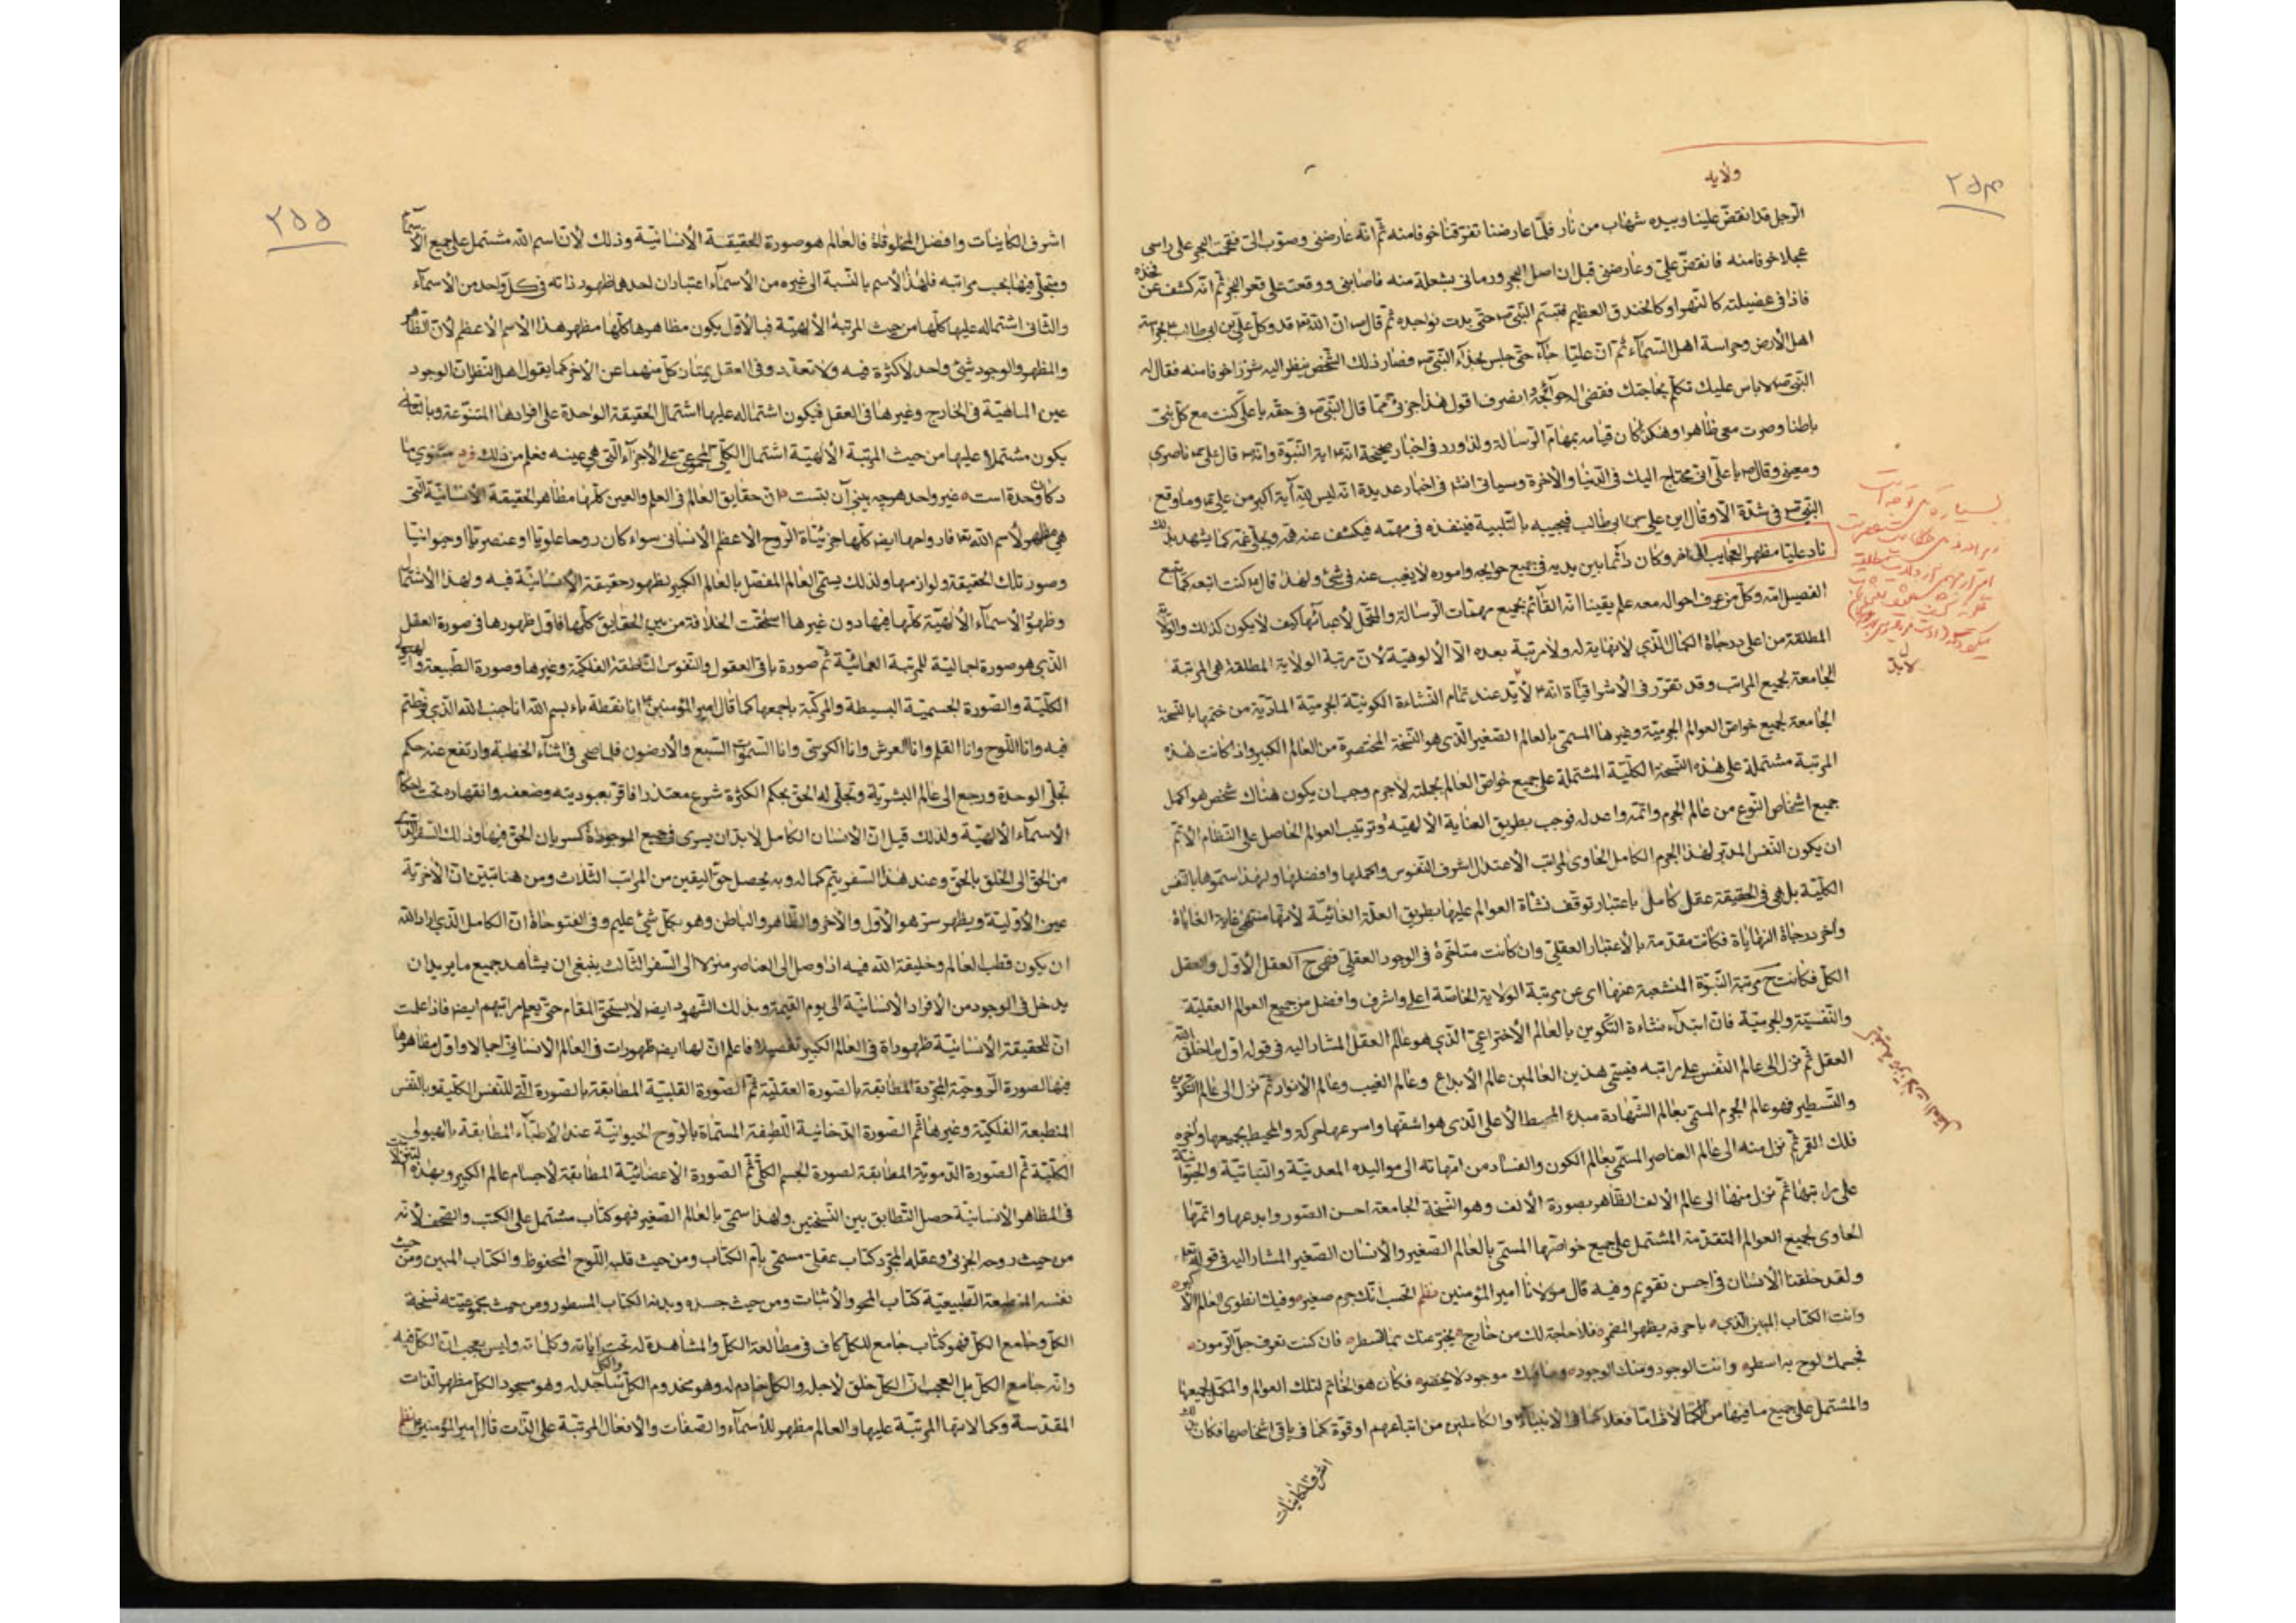 ولایه
۲۵۴
الرجل قد انقض علینا وبیده شهاب من نار فلما عارضنا تفرقنا خوفا منه ثم انه عارضنی وصوب الی فتقحمت البحر علی راسی
عجلا خوفا منه فانقض علی وعارضنی قبل ان اصل البحر ورمانی بشعلة منه فاصابنی ووقعت علی قعر البحر ثم انه کشف عن فخذه
فاذا فی عضیلته کالنهر او کالخندق العظیم فتبسم النبی ص حتی بدت نواجده ثم قال ص ان الله تع قد وکل علی بن ابی طالب ع بحراسة
اهل الأرض وحراسة اهل السمآء ثم ان علیا جآء حتی جلس بحذآء النبی ص فصار ذلک الشخص ینظر الیه شزرا خوفا منه فقال له
النبی ص لا باس علیک تکلم بحاجتک فقضی الحوائجه وانصرف اقول هذا جزئی مما قال النبی ص فی حقه یا علی کنت مع کل نبی
باطنا وصرت معی ظاهرا وهکذا کان قیامه بمهام الرسالة ولذا ورد فی اخبار صحیحة انه ع ایة النبوة وانه ص قال علی ع ناصری
ومعینی وقال ص یا علی انی محتاج الیک فی الدنیا والأخرة وسیاتی انش فی اخبار عدیدة انه لیس لله آیة اکبر من علی ع وما وقع
النبی ص فی شدة الا وقال این علی بن ابی طالب فیجیبه بالتلبیة فینفذه فی مهمه فیکشف عنه همه ویجلی غمه کما یشهد بذلک
ناد علیا مظهر العجایب الی اخر وکان دائما بین یدیه فی جمیع حوایجه واموره لا یغیب عنه فی شئ ولهذا قال ع کنت اتبعه کما یتبع
الفصیل امه وکل من عرف احواله معه علم یقینا انه القائم بجمیع مهمات الرسالة والمتحمل لأعبائها کیف لا یکون کذلک والولایة
المطلقة من اعلی درجاة الکمال الذی لا نهایة له ولا مرتبة بعده الا الألوهیة لأن مرتبة الولایة المطلقة هی المرتبة
الجامعة بجمیع المراتب وقد تقرر فی الأشراقیاة انه لا بد عند تمام النشاءة الکونیة الجرمیة المادیة من ختمها بالنسخة
الجامعة لجمیع خواص العوالم الجرمیة وغیرها المسمی بالعالم الصغیر الذی هو النسخة المختصرة من العالم الکبیر واذا کانت هذه
المرتبة مشتملة علی هذه النسخة الکلیة المشتملة علی جمیع خواص العالم بجملته لا جرم وجب ان یکون هناک شخص هو اکمل
جمیع اشخاص النوع من عالم الجرم واتمه واعدله فوجب بطریق العنایة الألهیة وترتیب العوالم الحاصل علی النظام الأتم
ان یکون النفس المدبر لهذا الجرم الکامل الحاوی لمراتب الأعتدال اشرف النفوس واکملها وافضلها ولهذا سموها بالنفس
الکلیة بل هی فی الحقیقة عقل کامل باعتبار توقف نشاة العوالم علیها بطریق العلة الغائیة لأنها منتهی غایة الغایاة
واخر درجاة النهایاة فکانت مقدمة بالأعتبار العقلی وان کانت متاخرة فی الوجود العقلی فهی ح العقل الأول والعقل
الکل فکانت ح مرتبة النبوة المنشعبة عنها ای عن مرتبة الولایة الخاصة اعلی واشرف وافضل من جمیع العوالم العقلیة
والنفسیة والجرمیة فان ابتدآء نشاءة التکوین بالعالم الأختراعی الذی هو عالم العقل المشار الیه فی قوله اول ما خلق الله
العقل ثم نزل الی عالم النفس علی مراتبه فیسمی هذین العالمین عالم الأبداع وعالم الغیب وعالم الأنوار ثم نزل الی عالم التکوین
والتسطیر فهو عالم الجرم المسمی بعالم الشهادة مبدء المحیط الأعلی الذی هو اشفها واسرعها حرکة والمحیط بجمیعها واخره
فلک القمر ثم نزل منه الی عالم العناصر المسمی بعالم الکون والفساد من امهاته الی موالیده المعدنیة والنباتیة والحیوانیة
علی مراتبها ثم نزل منها الی عالم الألف الظاهر بصورة الألف وهو النسخة الجامعة احسن الصور وابدعها واتمها
الحاوی لجمیع العوالم المتقدمة المشتمل علی جمیع خواصها المسمی بالعالم الصغیر والأنسان الصغیر المشار الیه فی قوله تع
ولقد خلقنا الأنسان فی احسن تقویم وفیه قال مولانا امیر المؤمنین نظم اتحسب انک جرم صغیر وفیک انطوی العالم الأکبر
وانت الکتاب المبین الذی باحرفه یظهر المضمر فلا حاجة لک من خارج یخبر عنک بما تسطر فان کنت تعرف حل الرموز
فجسمک لوح به اسطر وانت الوجود ومنک الوجود وما فیک موجود لا یحضر فکان هو الخاتم لتلک العوالم والمکمل لجمیعها
والمشتمل علی جمیع ما فیها من الکمالاة اما فعلا کما فی الأنبیآء والکاملین من اتباعهم او قوة کما فی باقی اشخاصها فکان
اشرف الکاینات
۲۵۵
اشرف الکاینات وافضل المخلوقاة فالعالم هو صورة الحقیقة الأنسانیة وذلک لأن اسم الله مشتمل علی جمیع الأسمآء
ومتجلی فیها بحسب مراتبه فلهذا الأسم بالنسبة الی غیره من الأسمآء اعتباران احدهما ظهور ذاته فی کل واحد من الأسمآء
والثانی اشتماله علیها کلها من حیث المرتبة الألهیة فبالأول یکون مظاهرها کلها مظهر هذا الأسم الأعظم لأن الظاهر
والمظهر والوجود شئ واحد لا کثرة فیه ولا تعدد وفی العقل یمتاز کل منهما عن الأخر کما یقول اهل النظر ان الوجود
عین الماهیة فی الخارج وغیرها فی العقل فیکون اشتماله علیها اشتمال الحقیقة الواحدة علی افرادها المتنوعة وبالثانی
یکون مشتملا علیها من حیث المرتبة الألهیة اشتمال الکل المجموعی علی الأجزآء التی هی عینه فعلم من ذلک فرد مثنوی ما
دکان وحدة است غیر واحد هرچه بینی آن بتست ان حقایق العالم فی العلم والعین کلها مظاهر الحقیقة الأنسانیة التی
هی مظهر لأسم الله تع فارواحها ایض کلها جزئیاة الروح الأعظم الأنسانی سواء کان روحا علویا او عنصریا او حیوانیا
وصور تلک الحقیقة ولوازمها ولذلک یسمی العالم المفصل بالعالم الکبیر بظهور حقیقة الأنسانیة فیه ولهذا الأشتمال
وظهور الأسمآء الألهیة کلها فیها دون غیرها استحقت الخلافة من بین الحقایق کلها فاول ظهورها فی صورة العقل
الذی هو صورة اجمالیة للمرتبة العمائیة ثم صورة باقی العقول والنفوس الناطقة الفلکیة وغیرها وصورة الطبیعة والهیولی
الکلیة والصورة الجسمیة البسیطة والمرکبة باجمعها کما قال امیر المؤمنین ع انا نقطة باء بسم الله انا جنب الله الذی فرطتم
فیه وانا اللوح وانا القلم وانا العرش وانا الکرسی وانا السموات السبع والأرضون فلما صحی فی اثنآء الخطبة وارتفع عنه حکم
تجلی الوحدة ورجع الی عالم البشریة وتجلی له الحق بحکم الکثرة شرع معتذرا فاقر بعبودیته وضعفه وانقهاره تحت احکام
الأسمآء الألهیة ولذلک قیل ان الأنسان الکامل لا بد ان یسری فی جمیع الموجودة کسریان الحق فیها وذلک السفر الثالث
من الحق الی الخلق بالحق وعند هذا السفر یتم کماله وبه یحصل حق الیقین من المراتب الثلاث ومن هنا یتبین ان الأخریة
عین الأولیة ویظهر سر هو الأول والأخر والظاهر والباطن وهو بکل شئ علیم وفی الفتوحاة ان الکامل الذی اراد الله
ان یکون قطب العالم وخلیفة الله فیه اذا وصل الی العناصر منزلا الی السفر الثالث ینبغی ان یشاهد جمیع ما یرید ان
یدخل فی الوجود من الأفراد الأنسانیة الی یوم القیمة وبذلک الشهود ایض لا یستحق المقام حتی یعلم مراتبهم ایض فاذا علمت
ان للحقیقة الأنسانیة ظهوراة فی العالم الکبیر تفصیلا فاعلم ان لها ایض ظهورات فی العالم الأنسانی اجمالا واول مظاهرها
فیها الصورة الروحیة المجردة المطابقة بالصورة العقلیة ثم الصورة القلبیة المطابقة بالصورة التی للنفس الکلیة وبالنفس
المنطبعة الفلکیة وغیرها ثم الصورة الدخانیة اللطیفة المسماة بالروح الحیوانیة عند الأطبآء المطابقة بالهیولی
الکلیة ثم الصورة الدمویة المطابقة لصورة الجسم الکلی ثم الصورة الأعضائیة المطابقة لأجسام عالم الکبیر وبهذه التنزلات
فی المظاهر الأنسانیة حصل التطابق بین النسختین ولهذا سمی بالعالم الصغیر فهو کتاب مشتمل علی الکتب والصحف لأنه
من حیث روحه الجزئی وعقله المجرد کتاب عقلی مسمی بام الکتاب ومن حیث قلبه اللوح المحفوظ والکتاب المبین ومن حیث
نفسه المنطبعة الطبیعیة کتاب المحو والأثبات ومن حیث جسده وبدنه الکتاب المسطور ومن حیث مجموعیته نسخة
الکل وجامع الکل فهو کتاب جامع للکل کاف فی مطالعة الکل والمشاهدة له تحت ایاته وکلماته ولیس بعجب ان الکل فیه
وانه جامع الکل بل العجب ان الکل خلق لاجله والکل خادم له وهو مخدوم الکل والکل ساجد له وهو مسجود الکل مظهر الذات
المقدسة وکمالاتها المرتبة علیها والعالم مظهر للأسمآء والصفات والأفعال المرتبة علی الذات قال امیر المؤمنین ع نظم